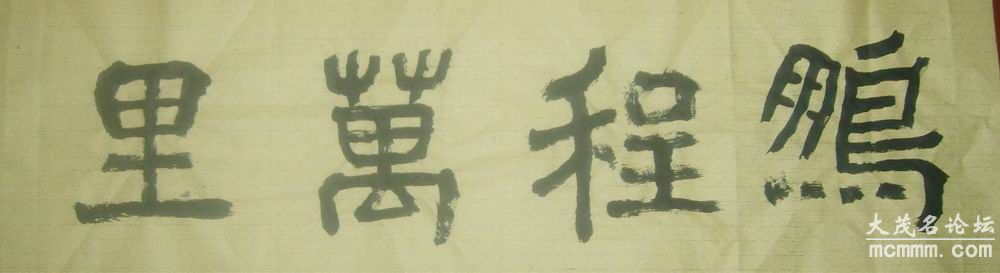 鵬程萬里
大茂名论坛
mcmmm.com